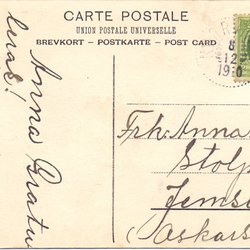 CARTE POSTALE
UNION POSTALE UNIVERSELLE
BREVKORT - POSTKARTE - POST CARD
8
12
19 0
Anna Gratu
leras!
Frk. Anna
Stolp
Jemse
Askars